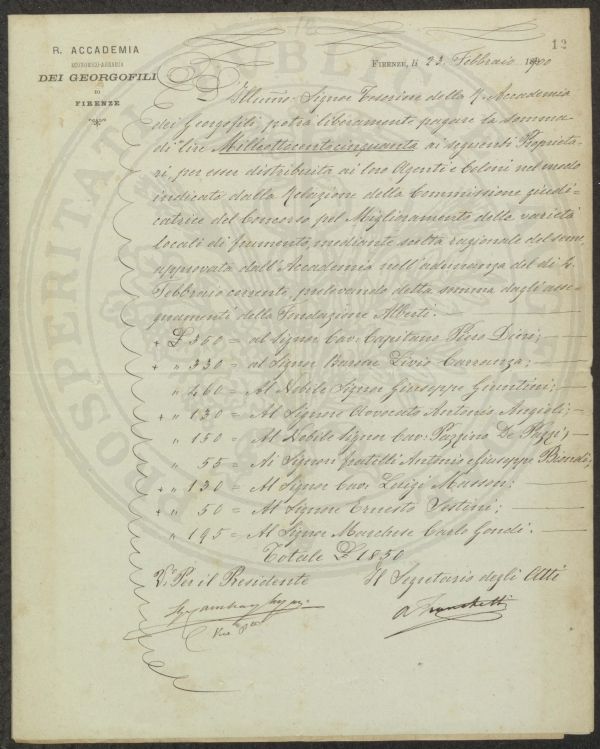 12
R. ACCADEMIA
ECONOMICO-AGRARIA
DEI GEORGOFILI
DI
FIRENZE
FIRENZE, li 23 Febbraio 1890
Illmo. Signor Tesoriere della R. Accademia
dei Georgofili potrà liberamente pagare la somma
di lire Milleottocentocinquanta ai seguenti Proprieta-
ri, per esser distribuita ai loro Agenti e Coloni nel modo
indicato dalla Relazione della Commissione giudi-
catrice del Concorso pel Miglioramento delle varietà
locali di frumento, mediante scelta razionale del seme
approvata dall'Accademia nell'adunanza del dì
Febbraio corrente, prelevando detta somma dagli asse-
gnamenti della Fondazione Alberti.
+ £ 350 = al Signor Cav: Capitano Piero Dini;
+ " 330 = al Signor Barone Livio Carranza;
" 460 = Al Nobile Signor Giuseppe Giuntini;
+ " 130 = Al Signore Avvocato Antonio Angioli;
" 150 = Al Nobile Signor Cav: Pazzino De Pazzi;
" 55 = Ai Signori fratelli Antonio e Giuseppe Biondi;
+ " 130 = Al Signor Cav: Luigi Masson;
+ " 50 = Al Signor Ernesto Testini;
" 195 = Al Signor Marchese Carlo Gondi.
Totale £ 1850
V° Per il Presidente
Il Segretario degli Atti
A Franchetti
PROSPERITATI PUBLICAE